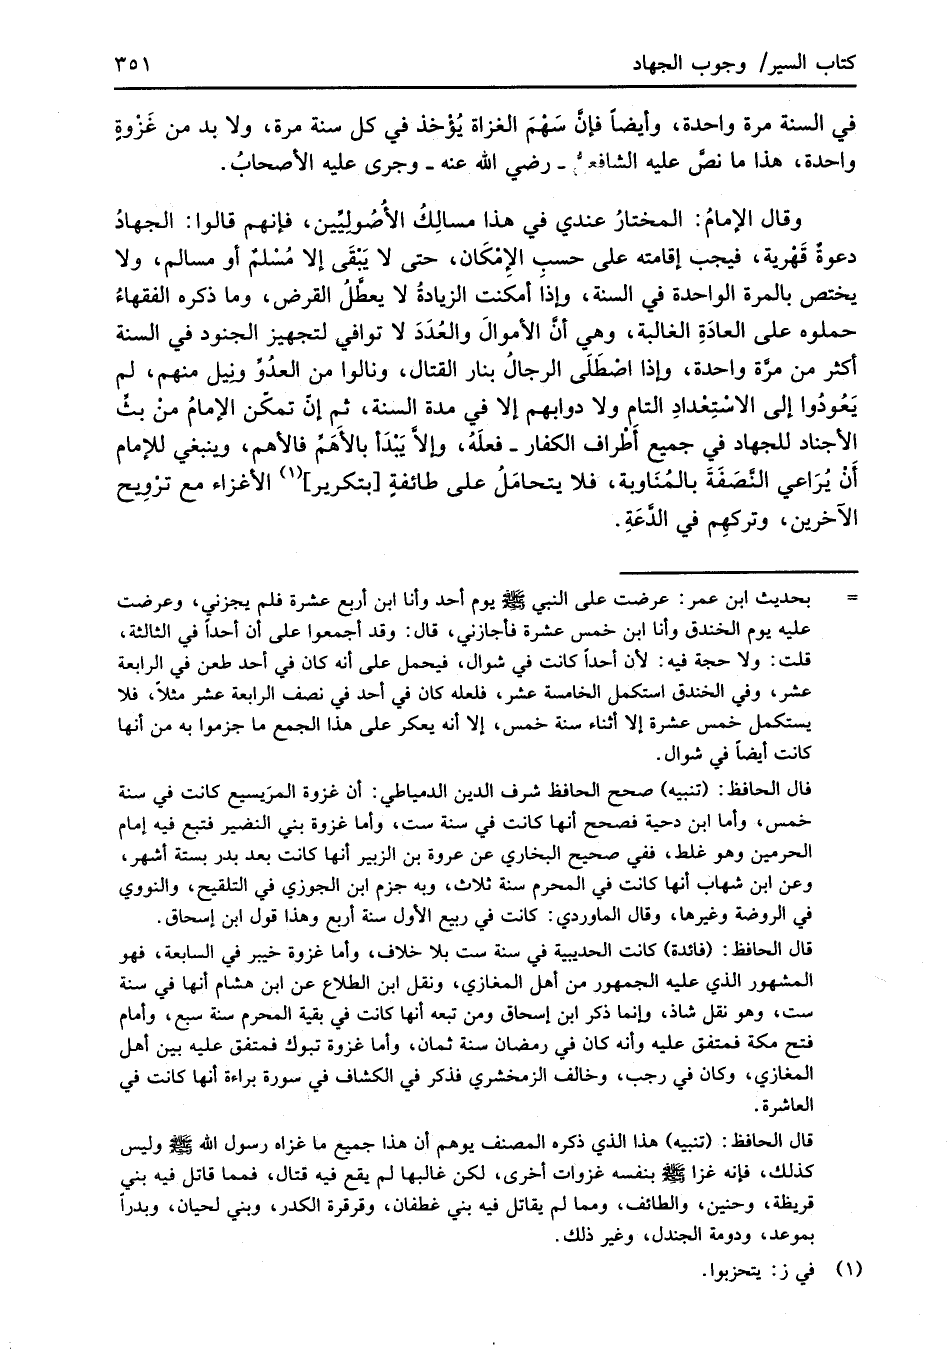 كتاب السير/ وجوب الجهاد ٣٥١
في السنة مرة واحدة، وأيضاً فإنَّ سَهْمَ الغزاة يُؤْخذ في كل سنة مرة، ولا بد من غَزْوةٍ
واحدة، هذا ما نصَّ عليه الشافعيُّ ـ رضي الله عنه ـ وجرى عليه الأصحابُ.
وقال الإمامُ: المختارُ عندي في هذا مسالِكُ الأُصُوليِّين، فإنهم قالوا: الجهادُ
دعوةٌ قَهْرية، فيجب إقامته على حسبِ الإمْكَان، حتى لا يَبْقَى إلا مُسْلمٌ أو مسالم، ولا
يختص بالمرة الواحدة في السنة، وإذا أمكنت الزيادةُ لا يعطَّلُ الفرض، وما ذكره الفقهاءُ
حملوه على العادَةِ الغالبة، وهي أنَّ الأموالَ والعُدَدَ لا توافي لتجهيز الجنود في السنة
أكثر من مرَّة واحدة، وإذا اصْطَلَى الرجالُ بنار القتال، ونالوا من العدُوِّ ونِيل منهم، لم
يَعُودُوا إلى الاسْتِعْدادِ التام ولا دوابهم إلا في مدة السنة، ثم إنّ تمكّن الإمامُ منْ بثِّ
الأجناد للجهاد في جميع أَطْراف الكفار ـ فعلَهُ، وإلاَّ يَبْدَأ بالأَهَمِّ فالأهم، وينبغي للإمام
أَنْ يُرَاعي النَّصَفَةَ بالمُنَاوبة، فلا يتحامَلُ على طائفةٍ [بتكرير](١) الأغزاء مع تَرْوِيح
الآخرين، وتركهِم في الدَّعَةِ.
= بحديث ابن عمر: عرضت على النبي ﷺ يوم أحد وأنا ابن أربع عشرة فلم يجزني، وعرضت
عليه يوم الخندق وأنا ابن خمس عشرة فأجازني، قال: وقد أجمعوا على أن أحداً في الثالثة،
قلت: ولا حجة فيه: لأن أحداً كانت في شوال، فيحمل على أنه كان في أحد طعن في الرابعة
عشر، وفي الخندق استكمل الخامسة عشر، فلعله كان في أحد في نصف الرابعة عشر مثلاً، فلا
يستكمل خمس عشرة إلا أثناء سنة خمس، إلا أنه يعكر على هذا الجمع ما جزموا به من أنها
كانت أيضاً في شوال.
قال الحافظ: (تنبيه) صحح الحافظ شرف الدين الدمياطي: أن غزوة المرَيسيع كانت في سنة
خمس، وأما ابن دحية فصحح أنها كانت في سنة ست، وأما غزوة بني النضير فتبع فيه إمام
الحرمين وهو غلط، ففي صحيح البخاري عن عروة بن الزبير أنها كانت بعد بدر بستة أشهر،
وعن ابن شهاب أنها كانت في المحرم سنة ثلاث، وبه جزم ابن الجوزي في التلقيح، والنووي
في الروضة وغيرها، وقال الماوردي: كانت في ربيع الأول سنة أربع وهذا قول ابن إسحاق.
قال الحافظ: (فائدة) كانت الحديبية في سنة ست بلا خلاف، وأما غزوة خيبر في السابعة، فهو
المشهور الذي عليه الجمهور من أهل المغازي، ونقل ابن الطلاع عن ابن هشام أنها في سنة
ست، وهو نقل شاذ، وإنما ذكر ابن إسحاق ومن تبعه أنها كانت في بقية المحرم سنة سبع، وأمام
فتح مكة فمتفق عليه وأنه كان في رمضان سنة ثمان، وأما غزوة تبوك فمتفق عليه بين أهل
المغازي، وكان في رجب، وخالف الزمخشري فذكر في الكشاف في سورة براءة أنها كانت في
العاشرة.
قال الحافظ: (تنبيه) هذا الذي ذكره المصنف يوهم أن هذا جميع ما غزاه رسول الله ﷺ وليس
كذلك، فإنه غزا ﷺ بنفسه غزوات أخرى، لكن غالبها لم يقع فيه قتال، فمما قاتل فيه بني
قريظة، وحنين، والطائف، ومما لم يقاتل فيه بني غطفان، وقرقرة الكدر، وبني لحيان، وبدراً
بموعد، ودومة الجندل، وغير ذلك.
(١) في ز: يتحزبوا.